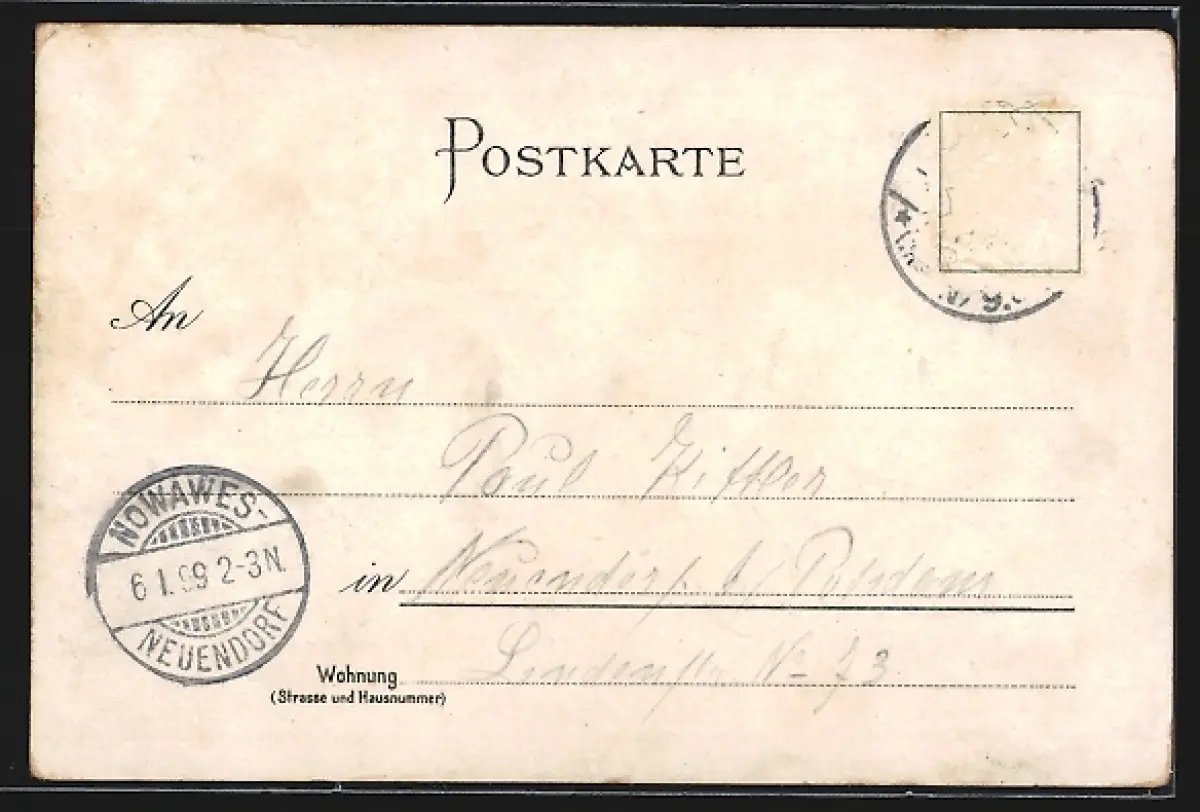 POSTKARTE
An
Herrn
Paul Kittler
in Neuendorf b/ Potsdam
Wohnung Lindenstr. No 73
(Strasse und Hausnummer)
NOWAWES-
6 1.99 2-3N.
NEUENDORF